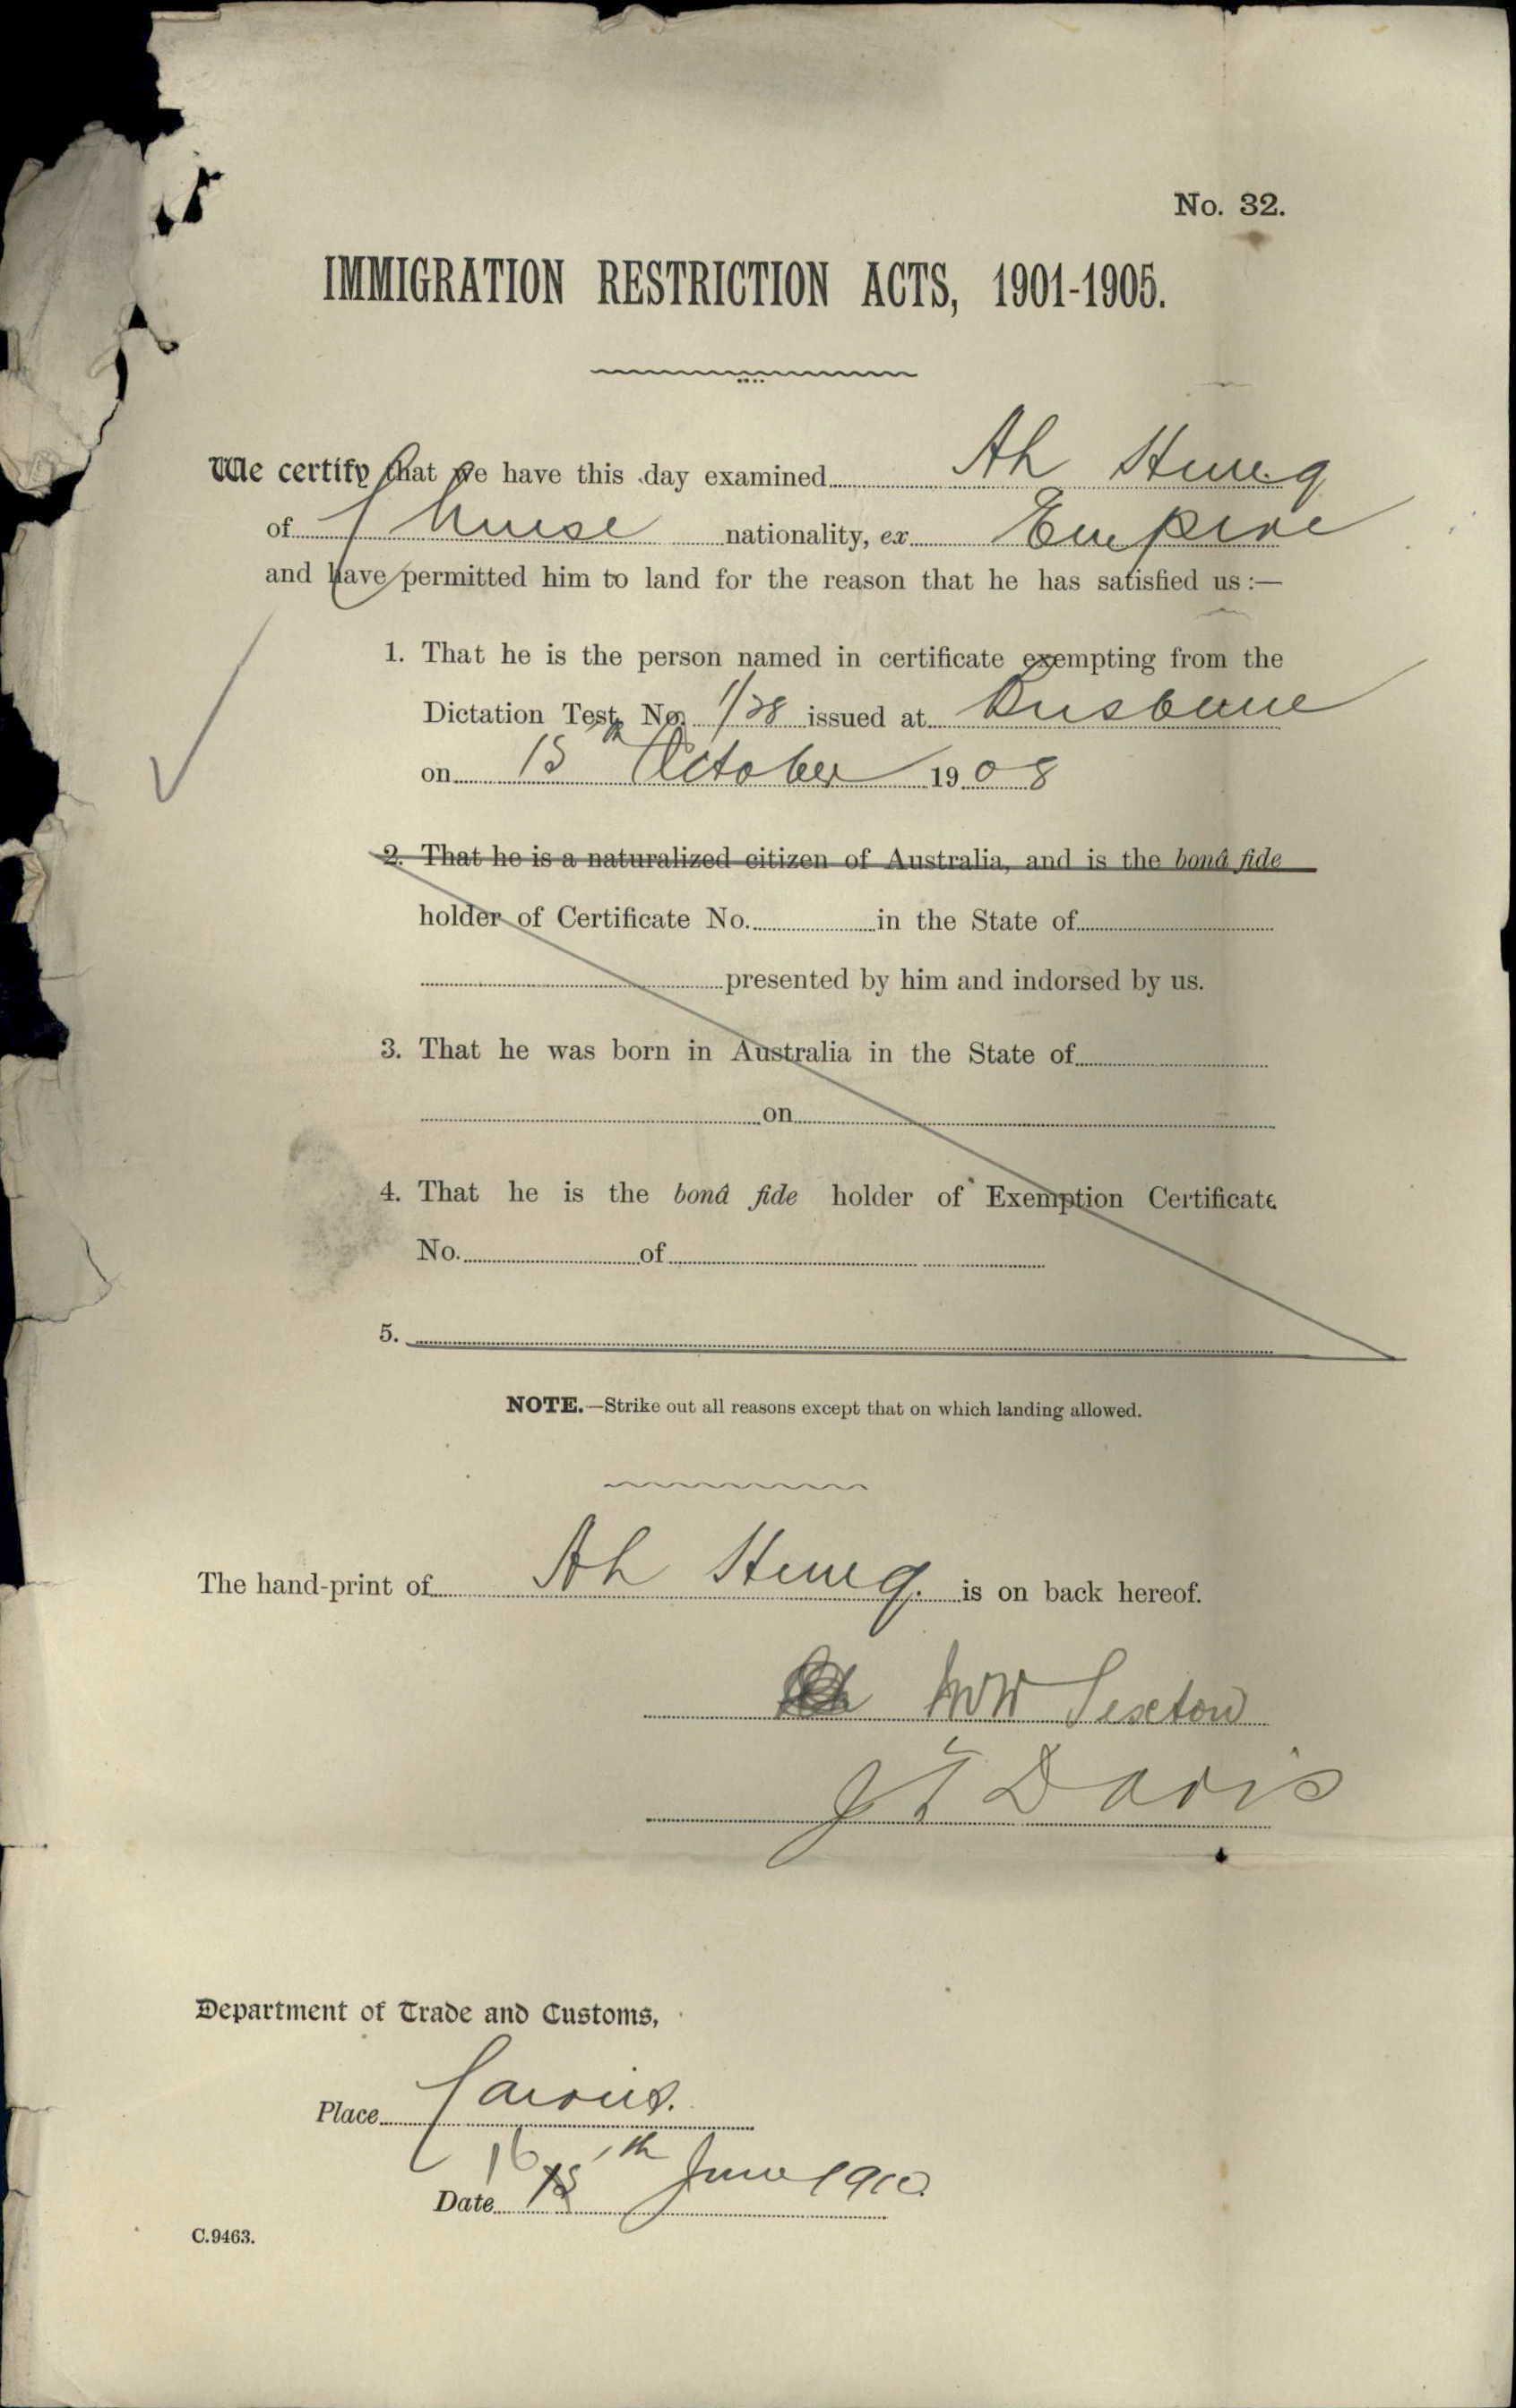 No. 32.
IMMIGRATION RESTRICTION ACTS, 1901-1905.
We certify that we have this day examined Ah
of Chinese nationality, ex Empire
and have permitted him to land for the reason that he has satisfied us :—
1. That he is the person named in certificate exempting from the
Dictation Test, No. 1/28 issued at Brisbane
on 15th October 1908
2. That he is a naturalized citizen of Australia, and is the bonâ fide
holder of Certificate No. in the State of
presented by him and indorsed by us.
3. That he was born in Australia in the State of
on
4. That he is the bonâ fide holder of Exemption Certificate
No. of
5.
NOTE.—Strike out all reasons except that on which landing allowed.
The hand-print of Ah is on back hereof.
Sexton
J T Davis
Department of Trade and Customs,
Place Cairns.
Date 16th June 1910
C.9463.